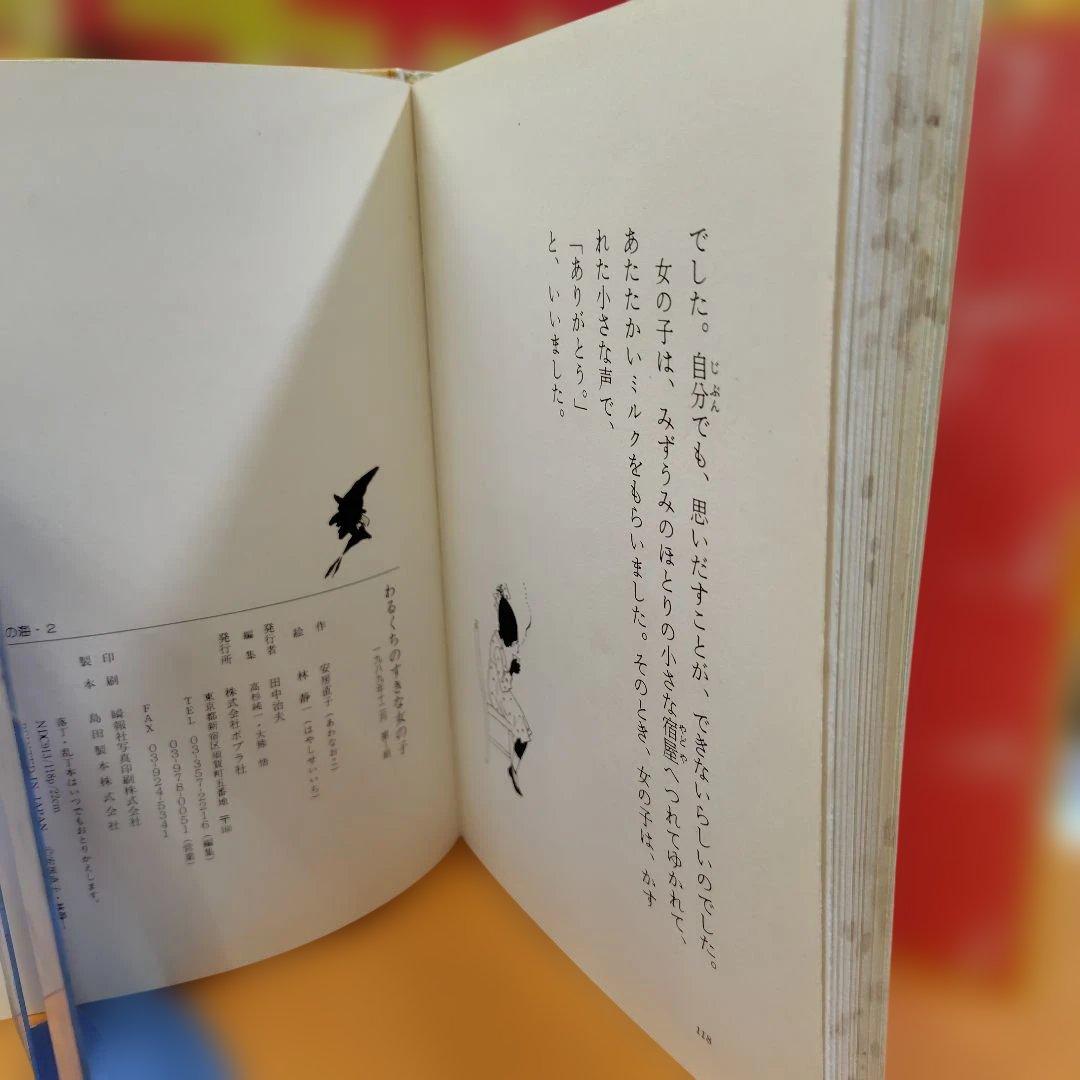 でした。自分でも、思いだすことが、できないらしいのでした。
じぶん
女の子は、みずうみのほとりの小さな宿屋へつれてゆかれて、
やどや
あたたかいミルクをもらいました。そのとき、女の子は、かす
れた小さな声で、
「ありがとう。」
と、いいました。
118
わるくちのすきな女の子
一九八九年十二月 第1刷
作 安房直子(あわなおこ)
絵 林 静一(はやしせいいち)
発行者 田中治夫
編集 高杉純一・大熊 悟
発行所 株式会社ポプラ社
東京都新宿区須賀町五番地 〒160
TEL 03-357-2216(編集)
03-978-0051(営業)
FAX 03-924-5341
印刷 瞬報社写真印刷株式会社
製本 島田製本株式会社
落丁・乱丁本はいつでもおとりかえします。
NDC913/118p/22cm
PRINTED IN JAPAN
の海・2